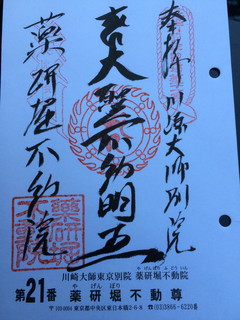 奉拝 川崎大師別院
大聖不動明王
薬研堀不動院
やげんぼりふどういん
川崎大師東京別院 薬研堀不動院
やげんぼり
第21番 薬研堀不動尊
東京都中央区東日本橋2-6-8 ☎(03)3866-6220番